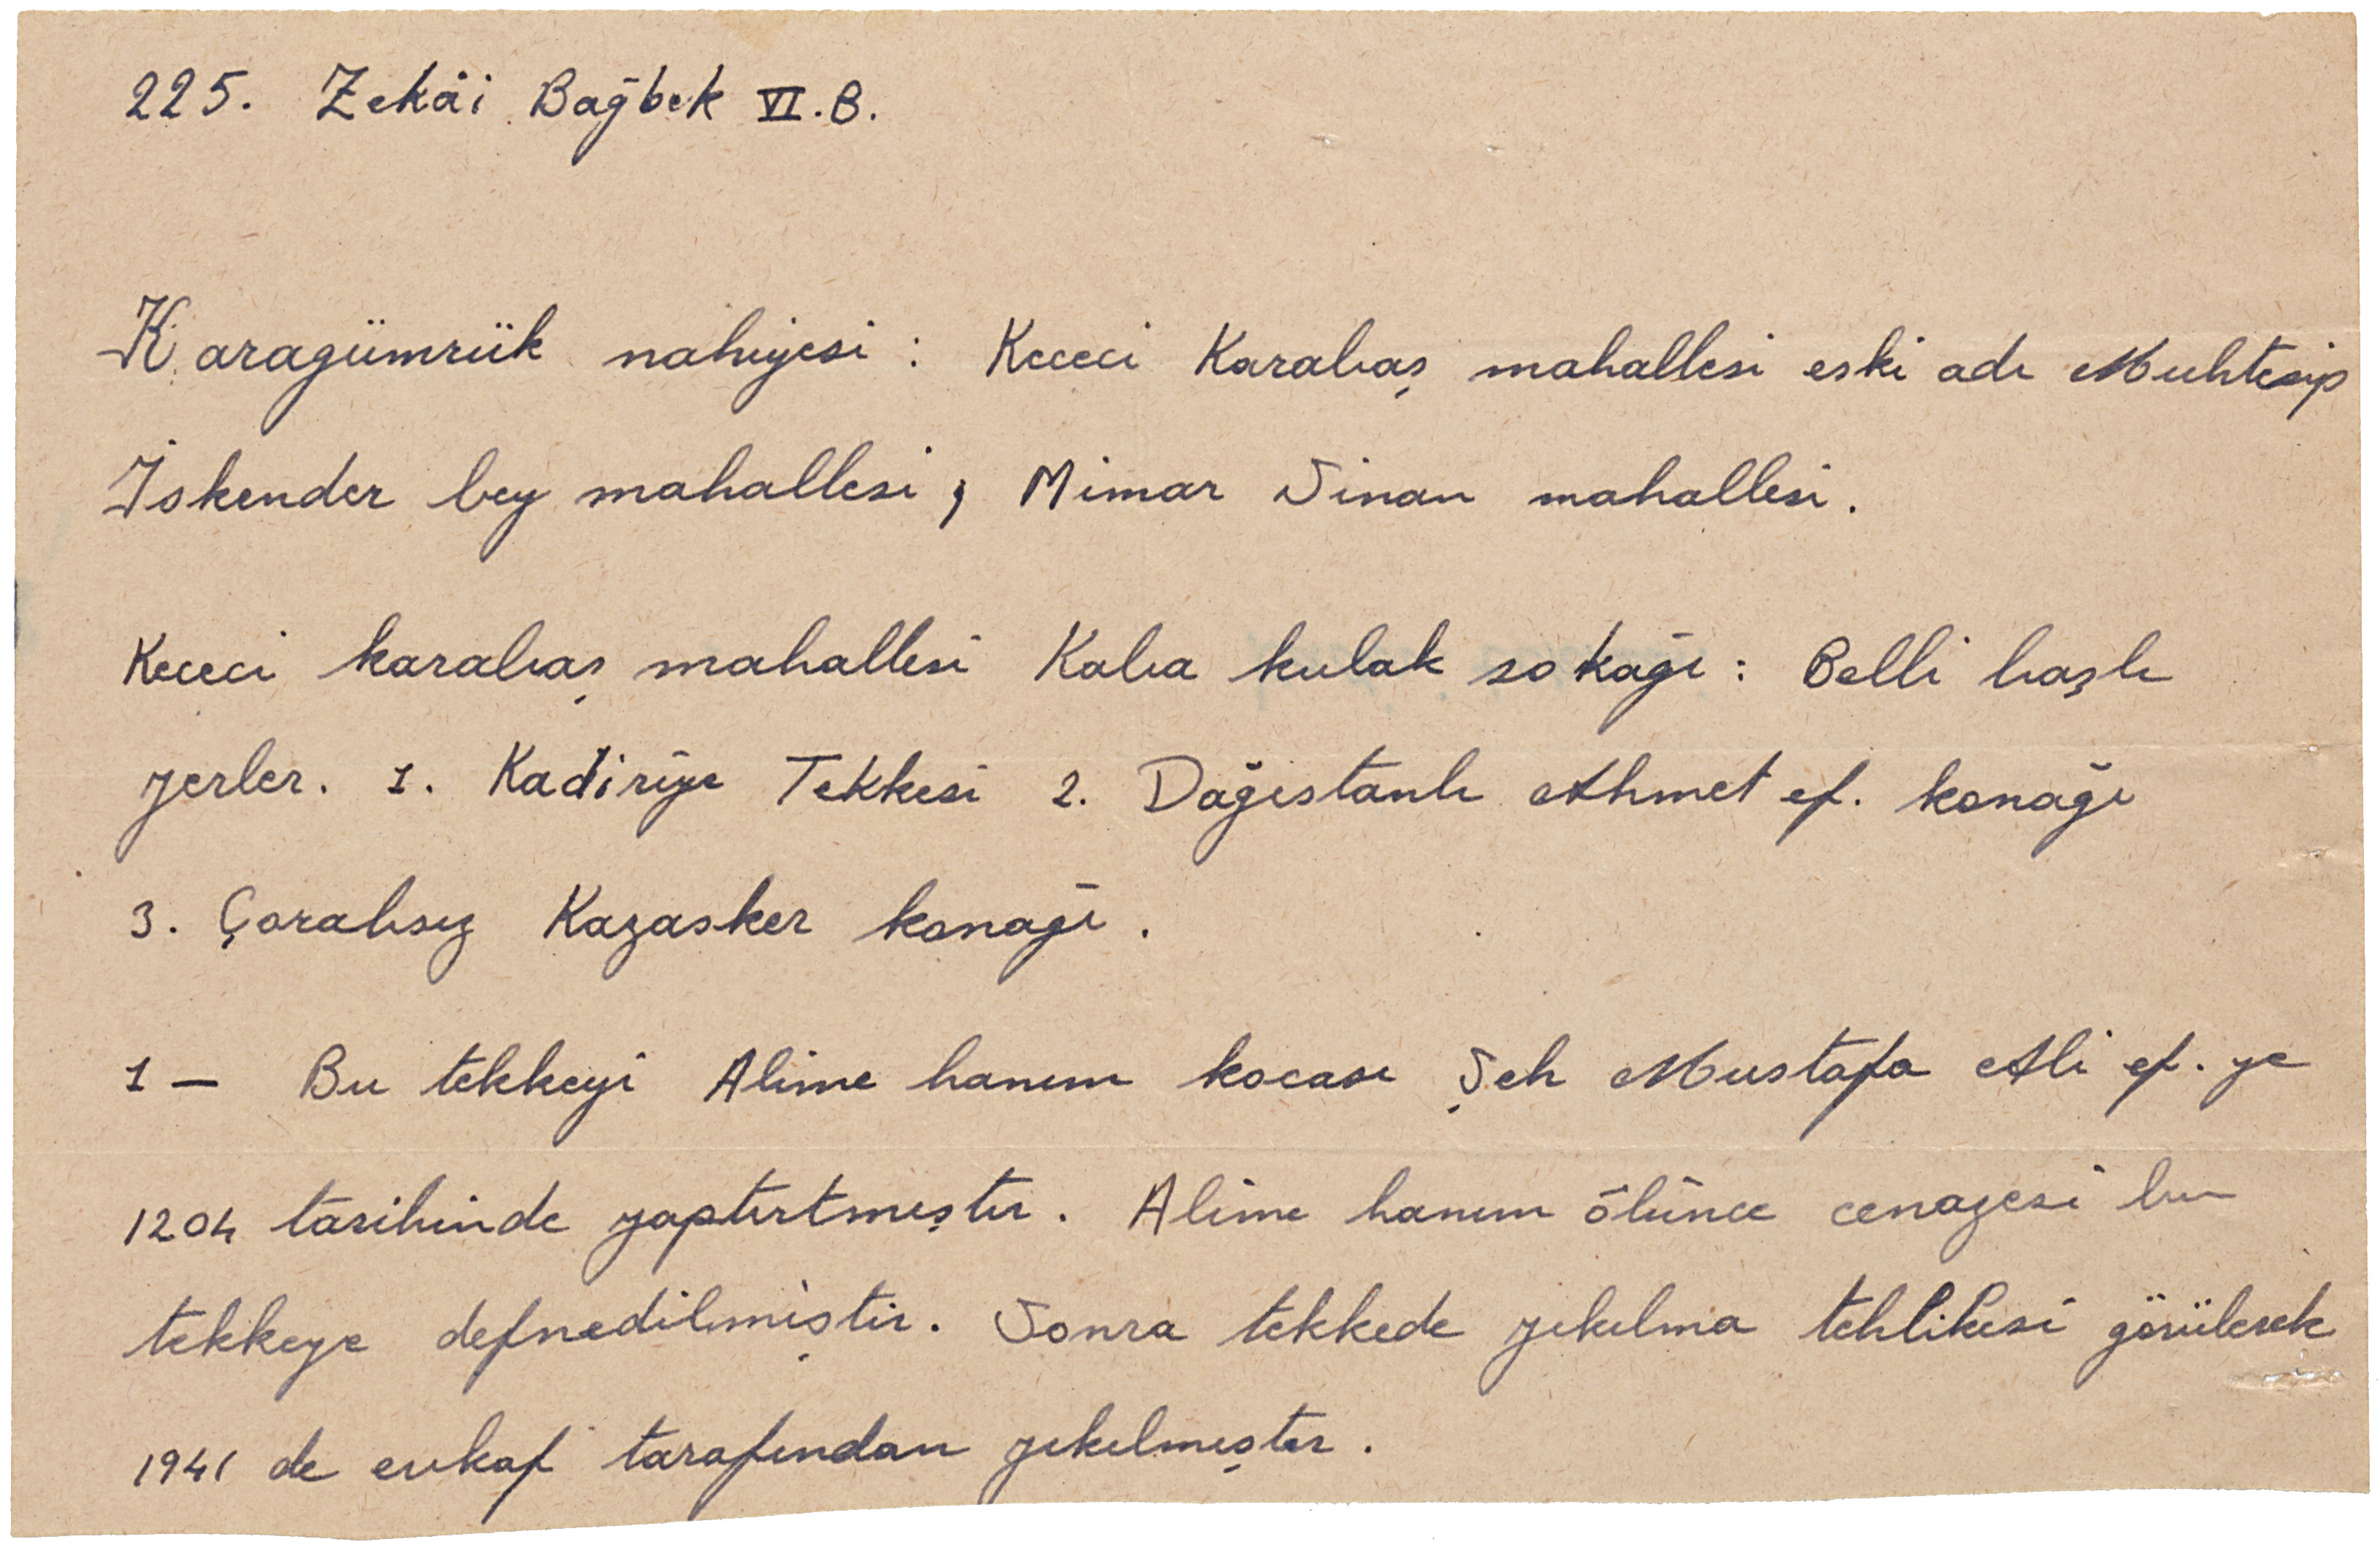 225. Zekâi Bağbek VI.B.
Karagümrük nahiyesi : Kececi Karabaş mahallesi eski adı Muhtesip
İskender bey mahallesi, Mimar Sinan mahallesi.
Kececi karabaş mahallesi Kaba kulak sokağı : Belli başlı
yerler. 1. Kadiriye Tekkesi 2. Dağıstanlı Ahmet ef. konağı
3. Çorabsız Kazasker konağı.
1 — Bu tekkeyi Alime hanım kocası Şeh Mustafa Ali ef. ye
1204 tarihinde yaptırtmıştır. Alime hanım ölünce cenazesi bu
tekkeye defnedilmiştir. Sonra tekkede yıkılma tehlikesi görülerek
1941 de evkaf tarafından yıkılmıştır.